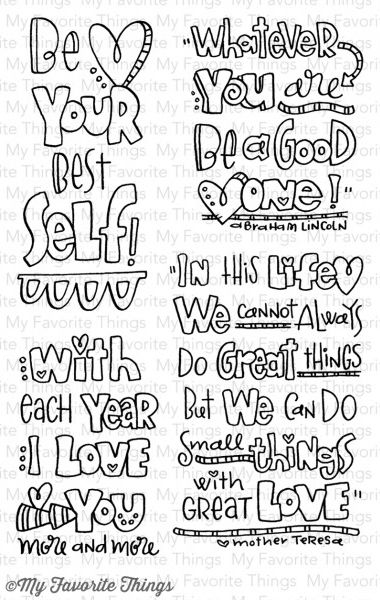 Be
YOUR
BEST
SELF!
With
each YEAR
I LOVE
YOU
more and more
"WHATEVER
YOU are
Be a GOOD
ONE!"
aBRaHaM LINCOLN
"IN THIS LIFE
We CANNOT ALWAYS
DO GReaT THINGS
BUT We CAN DO
Small things
with
GREAT LOVE"
mother TeReSa
©My Favorite Things